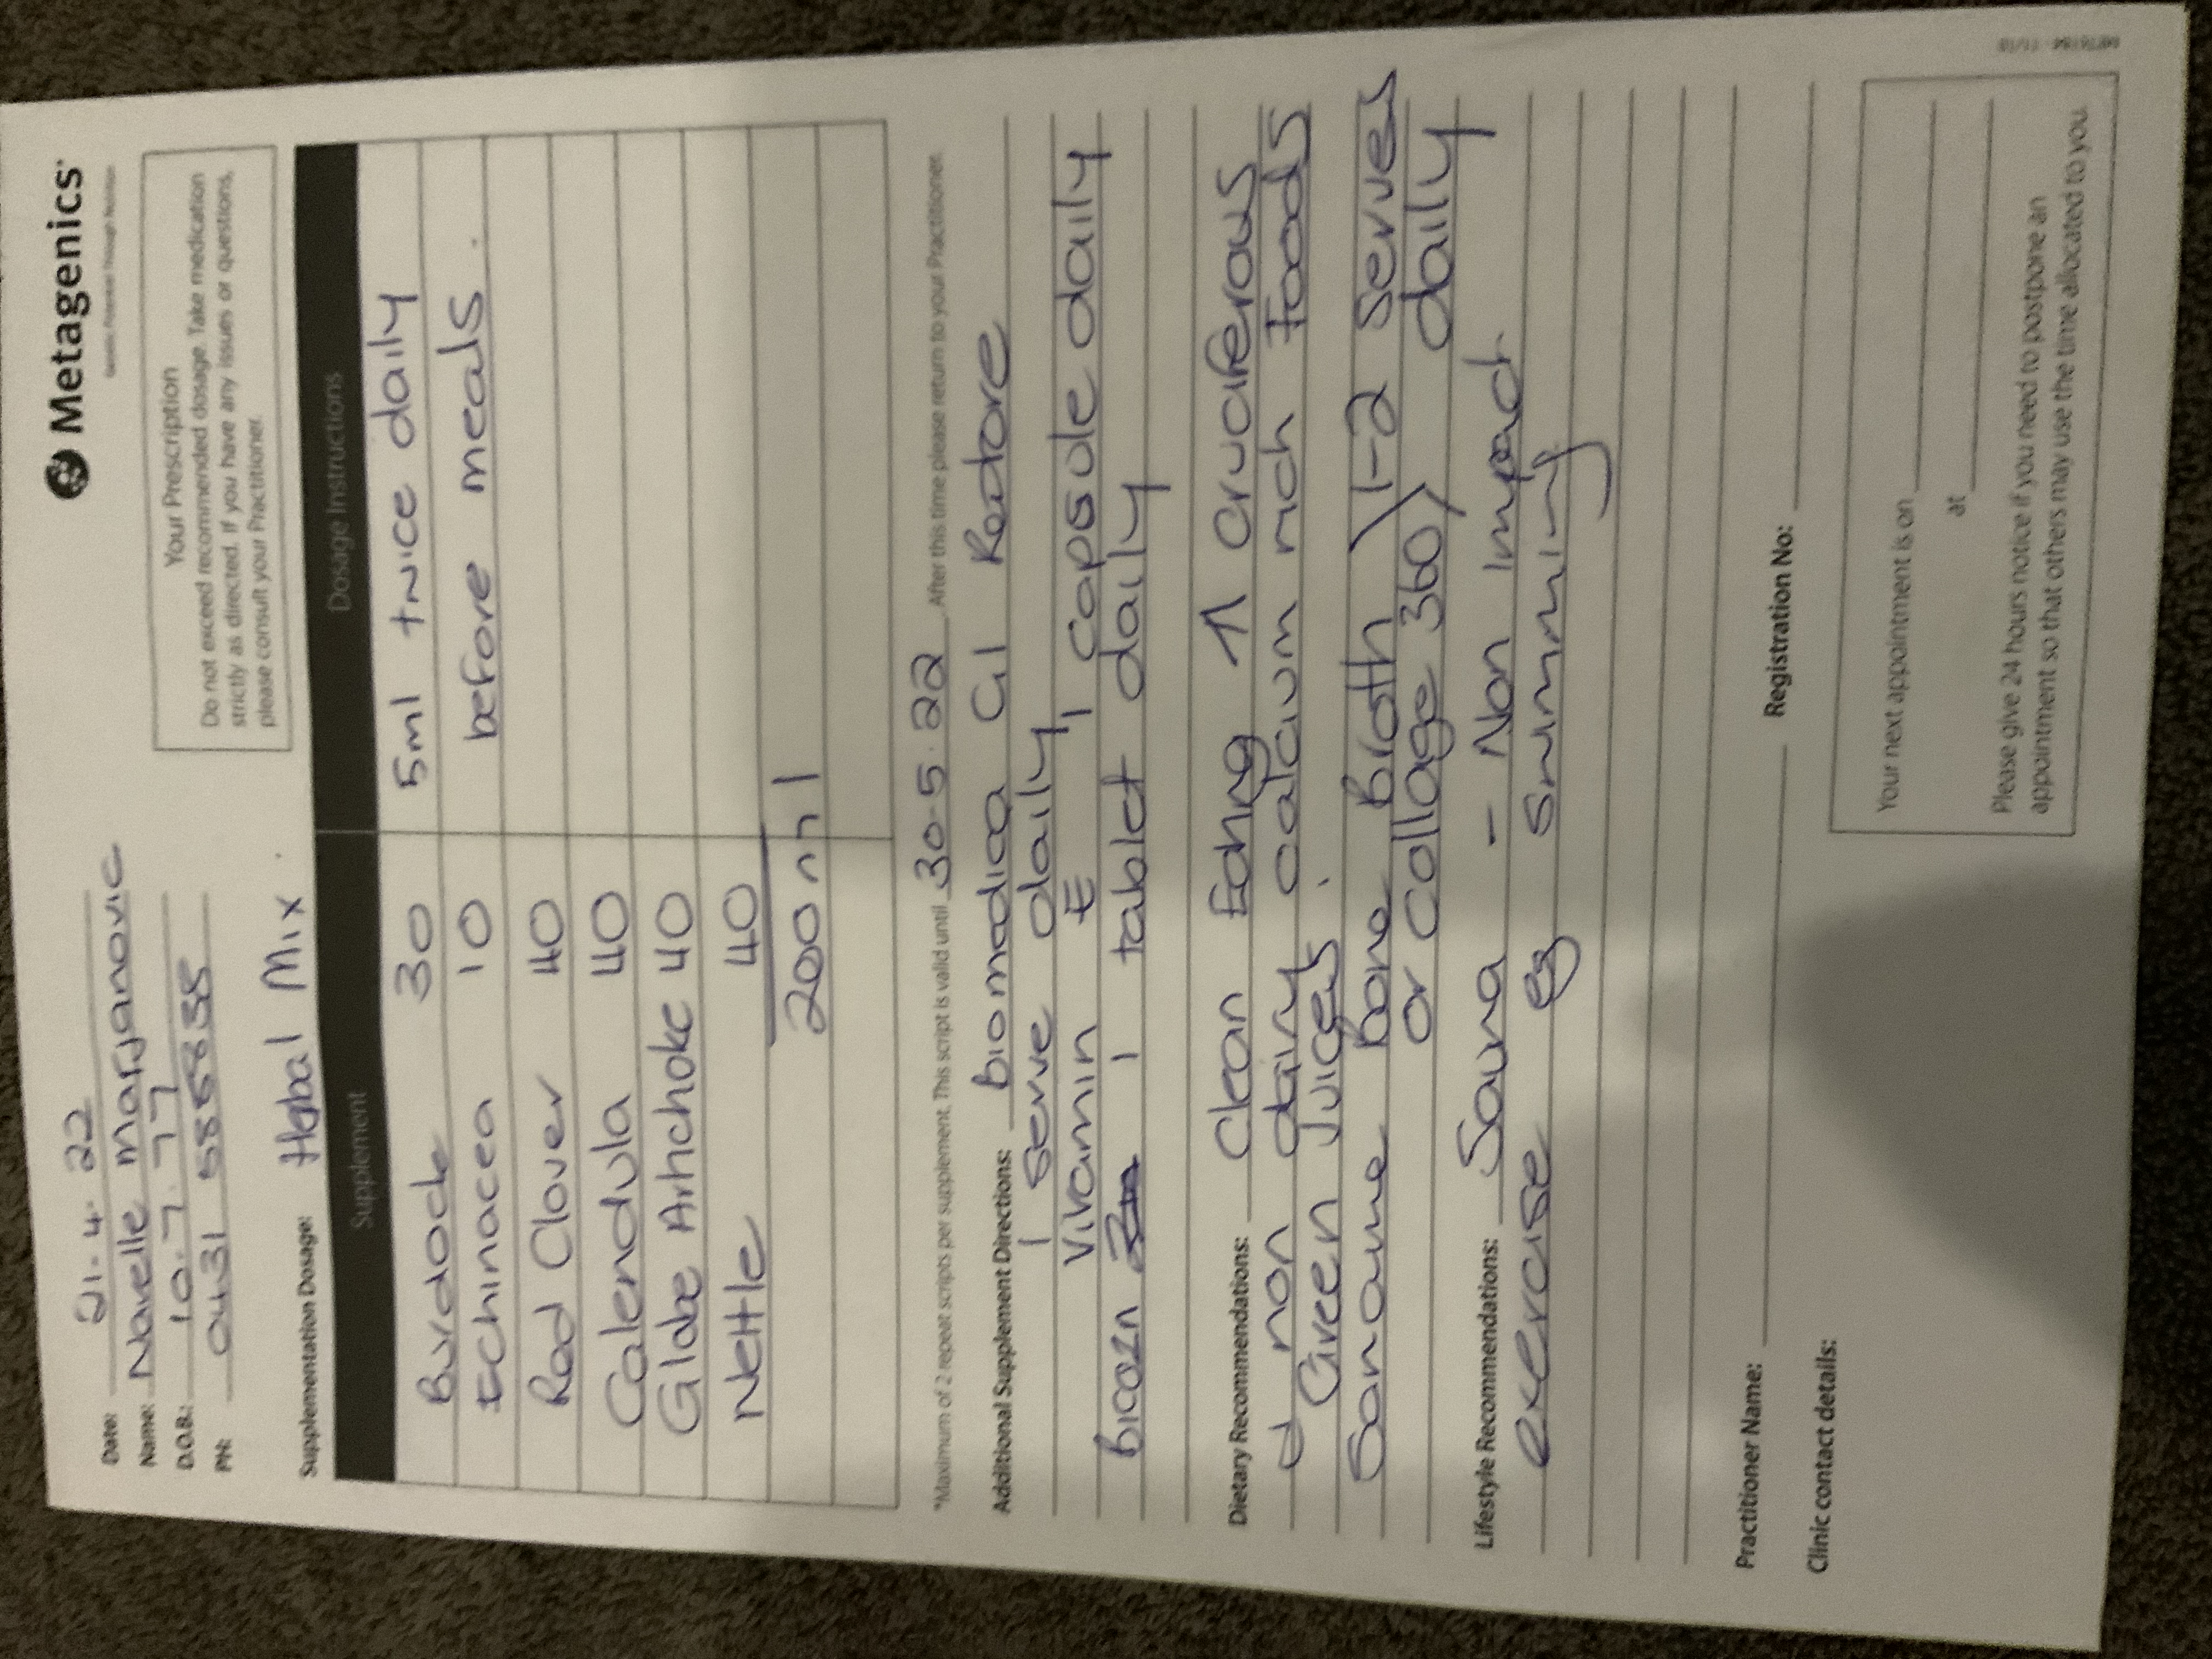 Metagenics
Genetic Potential Through Nutrition
Date: 21.4.22
Name: Navelle Marjanovic
D.O.B.: 10.7.77
PH: 0431 585838
Your Prescription
Do not exceed recommended dosage. Take medication
strictly as directed. If you have any issues or questions,
please consult your Practitioner.
Supplementation Dosage: Herbal Mix.
Supplement Dosage Instructions
Burdock 30 5ml twice daily
Echinacea 10 before meals.
Red Clover 40
Calendula 40
Globe Artichoke 40
Nettle 40
200 ml
*Maximum of 2 repeat scripts per supplement. This script is valid until 30.5.22. After this time please return to your Practitioner.
Additional Supplement Directions: Biomedica GI Restore
1 serve daily
Vitamin E, 1 capsule daily
Bicozn 1 tablet daily
Dietary Recommendations: Clean Eating ↑ Cruciferous
& non dairy calcium rich foods
Green Juices.
Sonoume Bone Broth 1-2 serves
or Collage 360 daily
Lifestyle Recommendations: Sauna - Non Impact
exercise eg swimming
Practitioner Name: Registration No:
Clinic contact details:
Your next appointment is on
at
Please give 24 hours notice if you need to postpone an
appointment so that others may use the time allocated to you.
MET6184 - 11/18